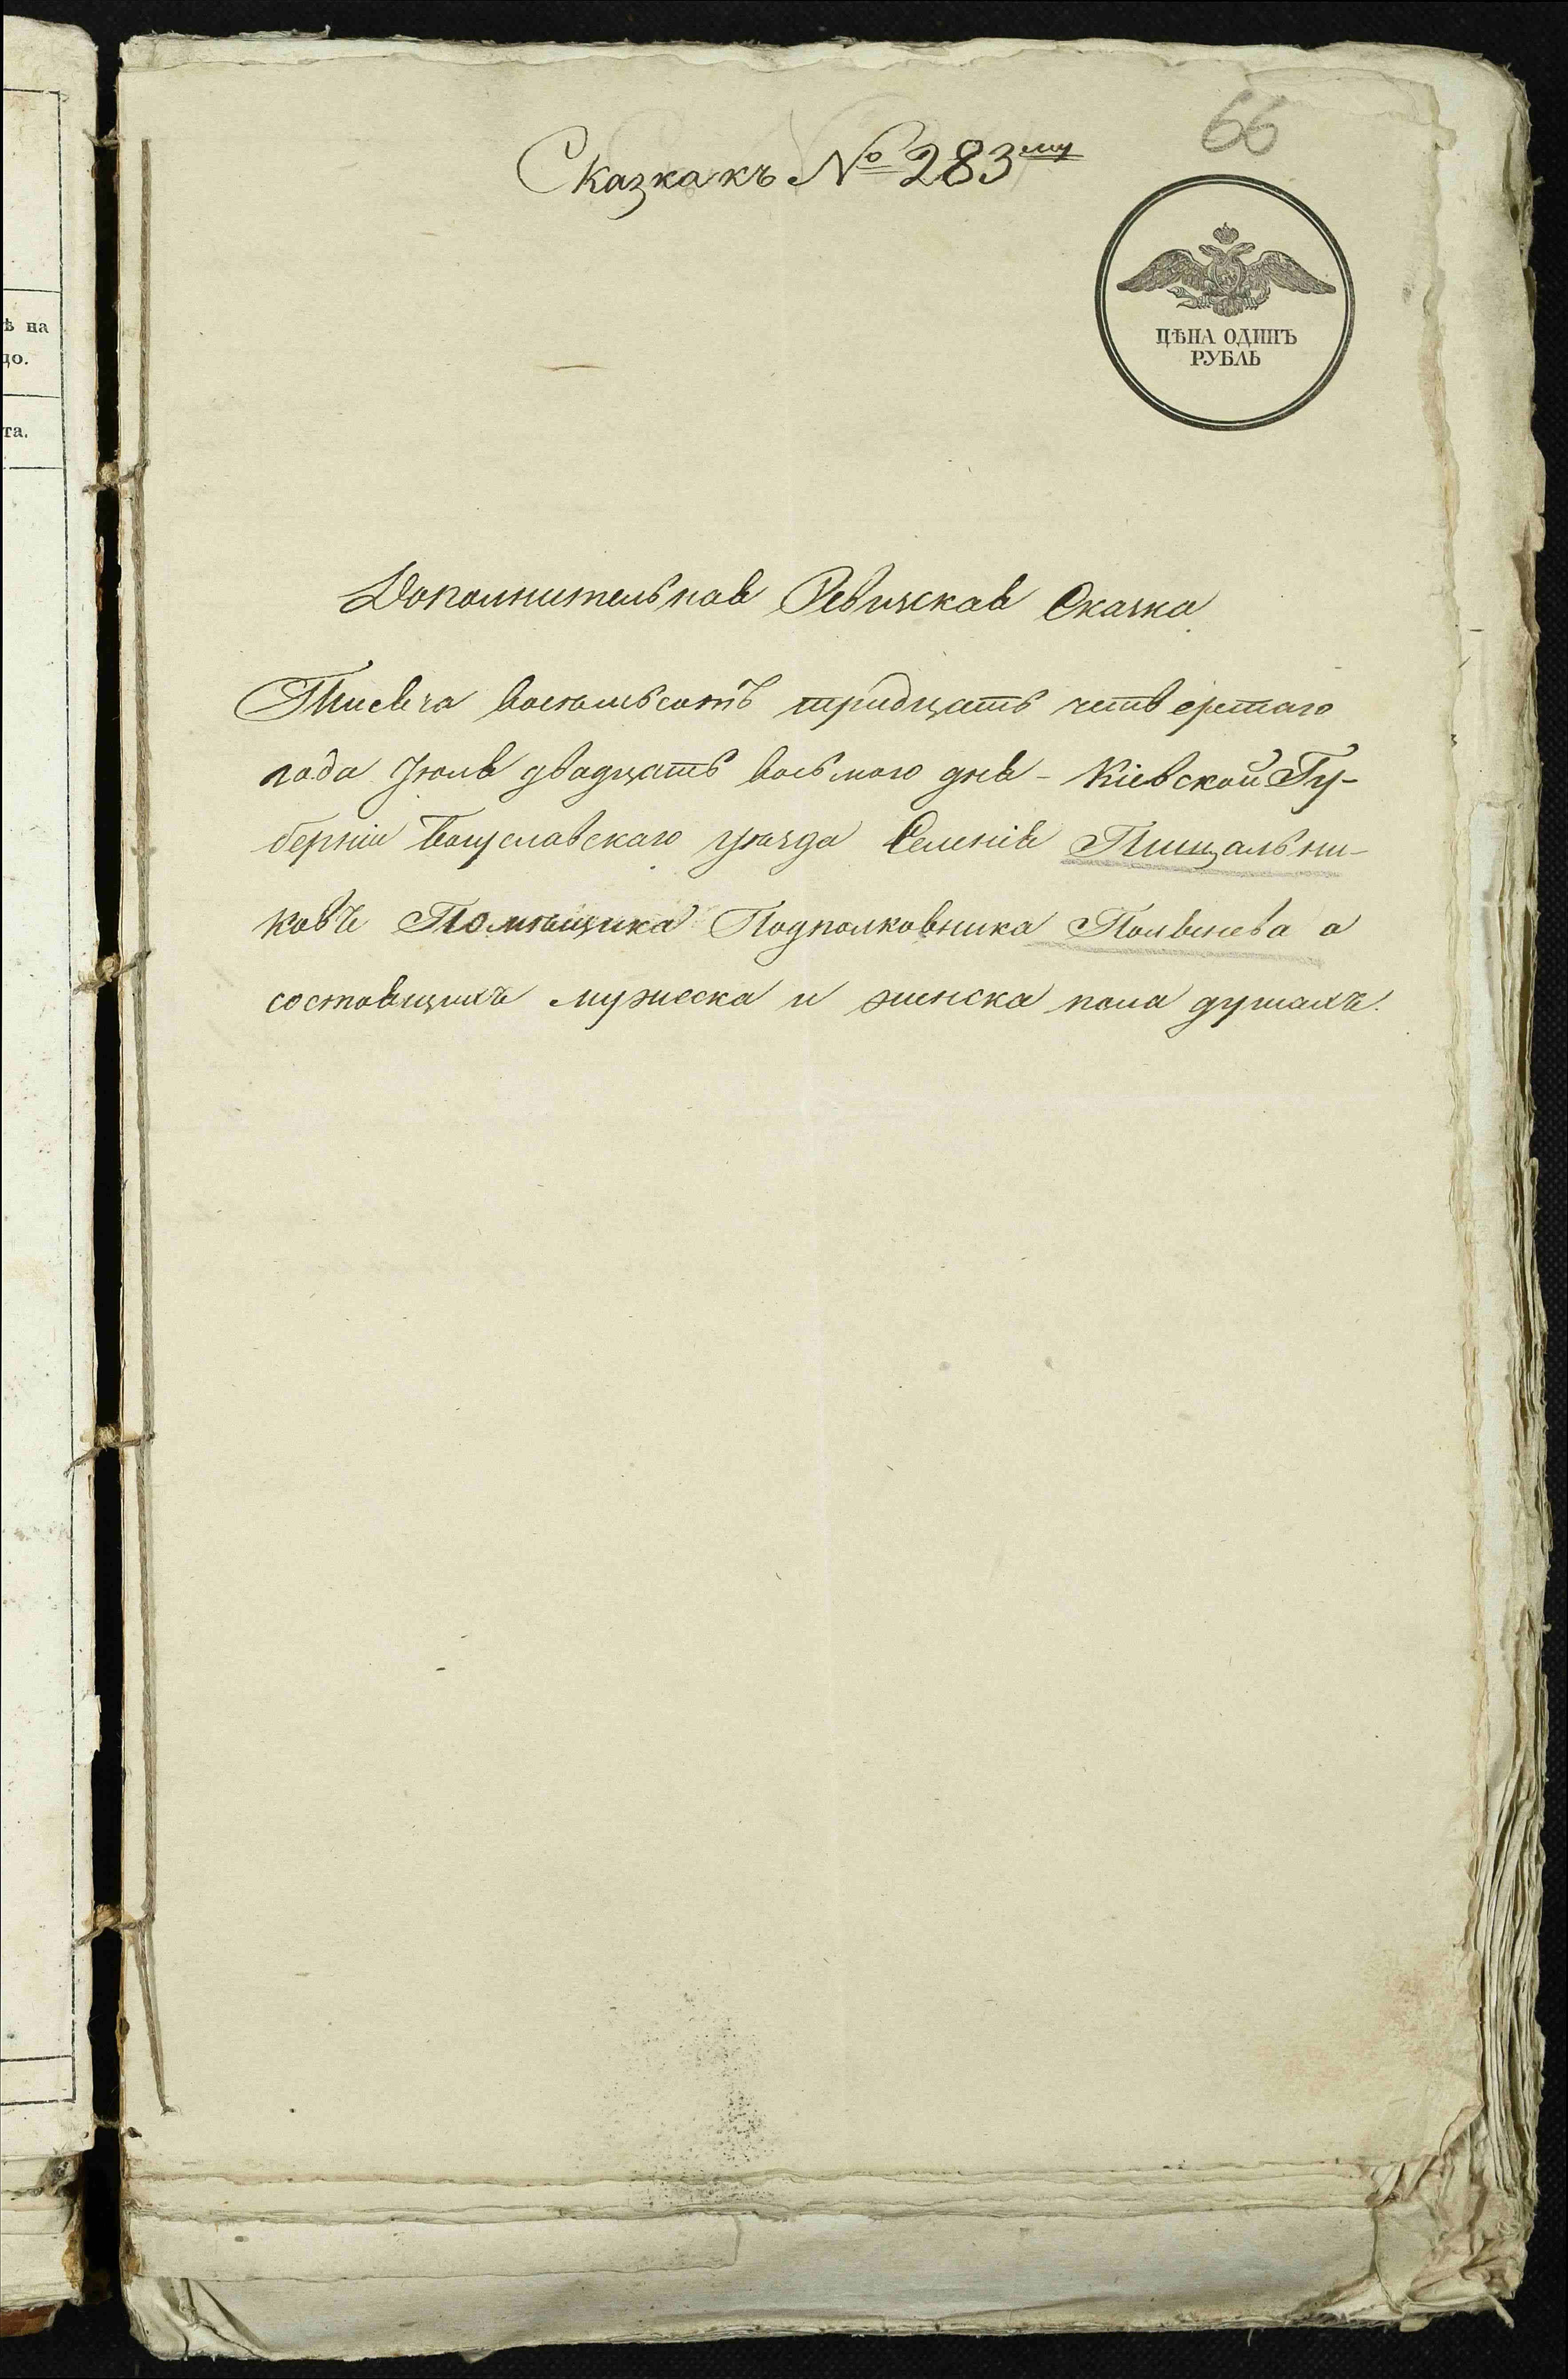 66
Сказка къ № 283му
ЦѢНА ОДИНЪ
РУБЛЬ
ѣ на
до.
та.
Дополнительная Ревизская Сказка
Тысеча восемьсотъ тридцать четвертаго
года Июля двадцать восьмого дня - Кіевской Гу-
берніи Богуславскаго уѣзда Селенія Пищальни-
ковъ Помѣщика Подполковника а
состоящихъ мужеска и женска пола душахъ.